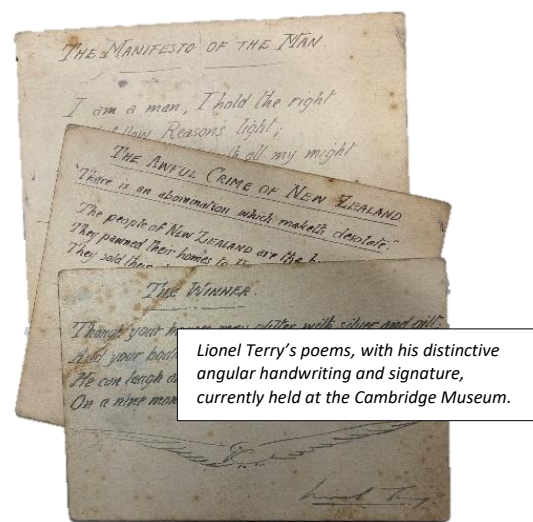 THE MANIFESTO OF THE MAN
I am a man, I hold the right
follow Reason's light;
all my might
THE AWFUL CRIME OF NEW ZEALAND
"There is an abomination which maketh desolate."
The people of NEW ZEALAND are the
They pawned their homes to
They sold their
THE WINNER
Though your haven may glitter with silver and gilt;
And your
He can laugh
On a nine
Lionel Terry's poems, with his distinctive
angular handwriting and signature,
currently held at the Cambridge Museum.
Lionel Terry